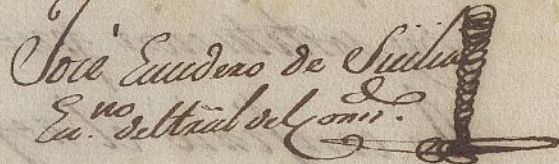 José Escudero de Sicilia
Es.no del Tral del Cons.do